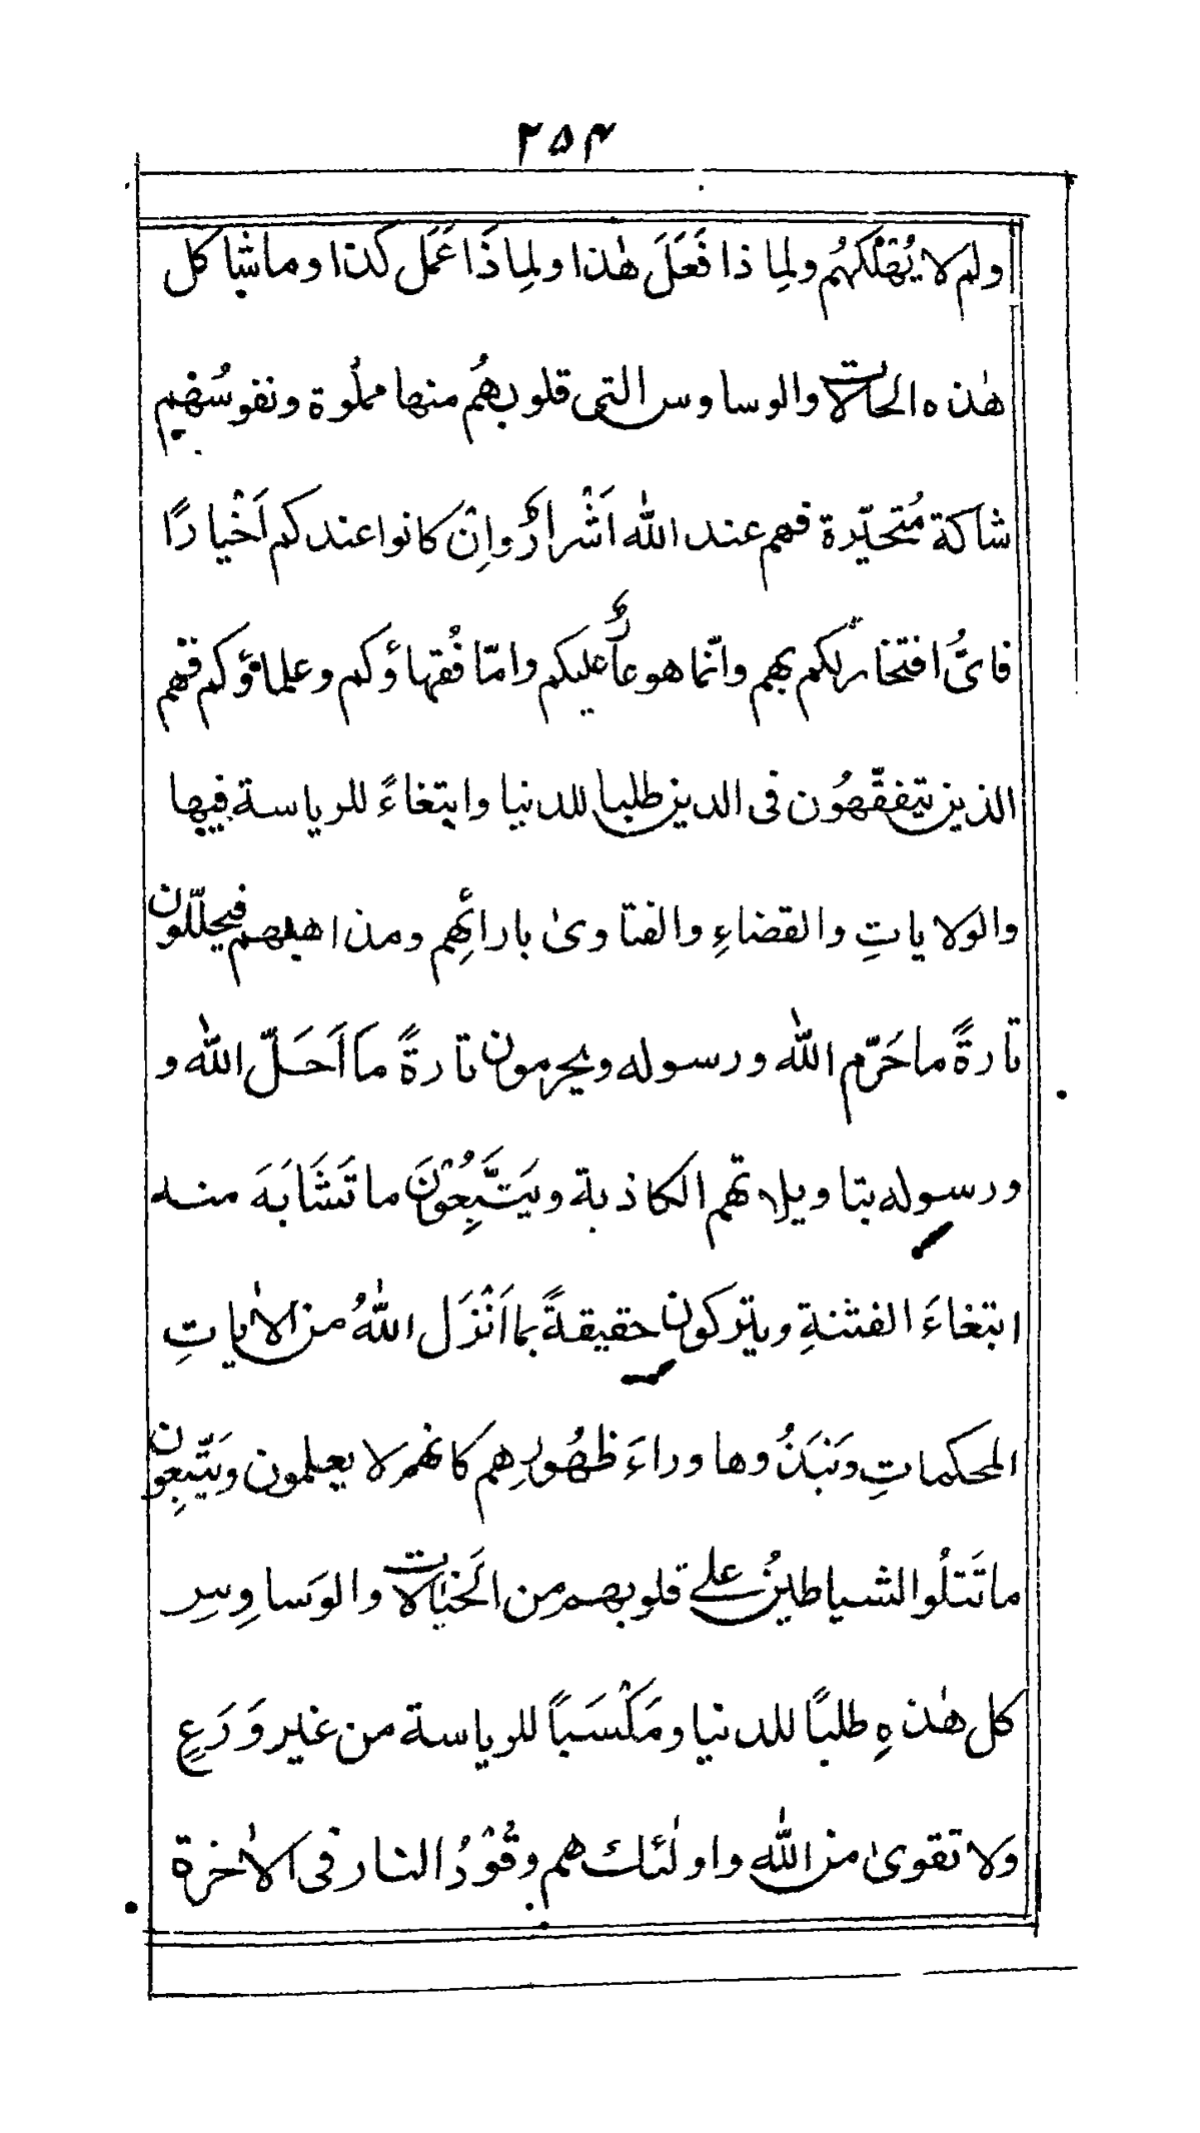 ۲۵۴
ولم لا يُهْلكهُم ولِما ذا فَعَلَ هٰذا ولِما ذَا عَمَل كَذا وما شَاكل
هٰذه الحالات والوساوس التى قلوبهُم منها مملُوة ونفوسُهم
شاكة مُتحيّرة فهم عند اللّٰه اَشْرارٌ واِن كانوا عندكم اَخْيارًا
فاىُّ افتخارٍ لكم بهم وانّما هو عارٌ عليكم وامّا فُقهاؤكم وعلماؤكم فهم
الذين يتفقّهُون فى الدين طلبا للدنيا وابتغاءً للرياسة فيها
والولاياتِ والقضاءِ والفتاوىٰ بارائهِم ومذاهبهم فيحلّلون
تارةً ما حَرّم اللّٰه ورسوله ويحرمون تارةً مَا اَحَلّ اللّٰه و
ورسوله بتاويلاتهم الكاذبة ويَتَّبِعُوْنَ ما تَشَابَهَ منه
ابتغاءَ الفتنةِ ويتركون حقيقةً بما اَنْزَل اللّٰهُ من الاٰياتِ
المحكماتِ ونَبَذُوها وراءَ ظهُورِهِم كانهم لا يعلمون ويَتّبِعون
ما تَتلُوا الشياطينُ على قلوبهم من الخَيالات والوَساوِسِ
كل هٰذهِ طلبًا للدنيا ومَكْسَبًا للرياسة من غير وَرَعٍ
ولا تقوىٰ من اللّٰه واولٰئك هم وقُوْدُ النار فى الاٰخرة